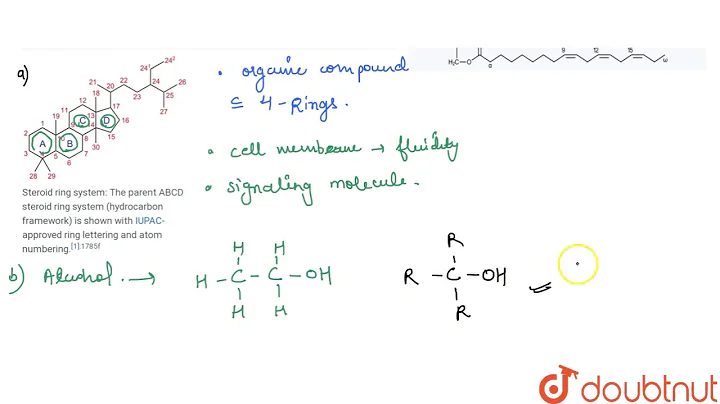 a)
24¹ 24²
21 22 24 26
20 23 25
18 27
12 17
11 13
19 C D 16
1 9 14
2 10 8 15
A B 30
3 5 7
4 6
28 29
Steroid ring system: The parent ABCD
steroid ring system (hydrocarbon
framework) is shown with IUPAC-
approved ring lettering and atom
numbering.[1]:1785f
• organic compound
⊆ 4-Rings.
• cell membrane → fluidity
• signaling molecule.
H₃C O O α 9 12 15 ω
b) Alcohol. →
H H
H - C - C - OH
H H
R
R - C - OH
R
doubtnut